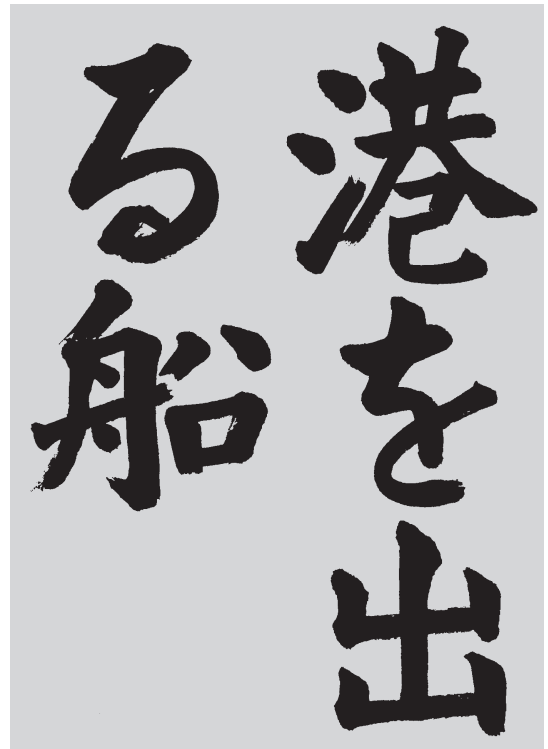 港を出
る船